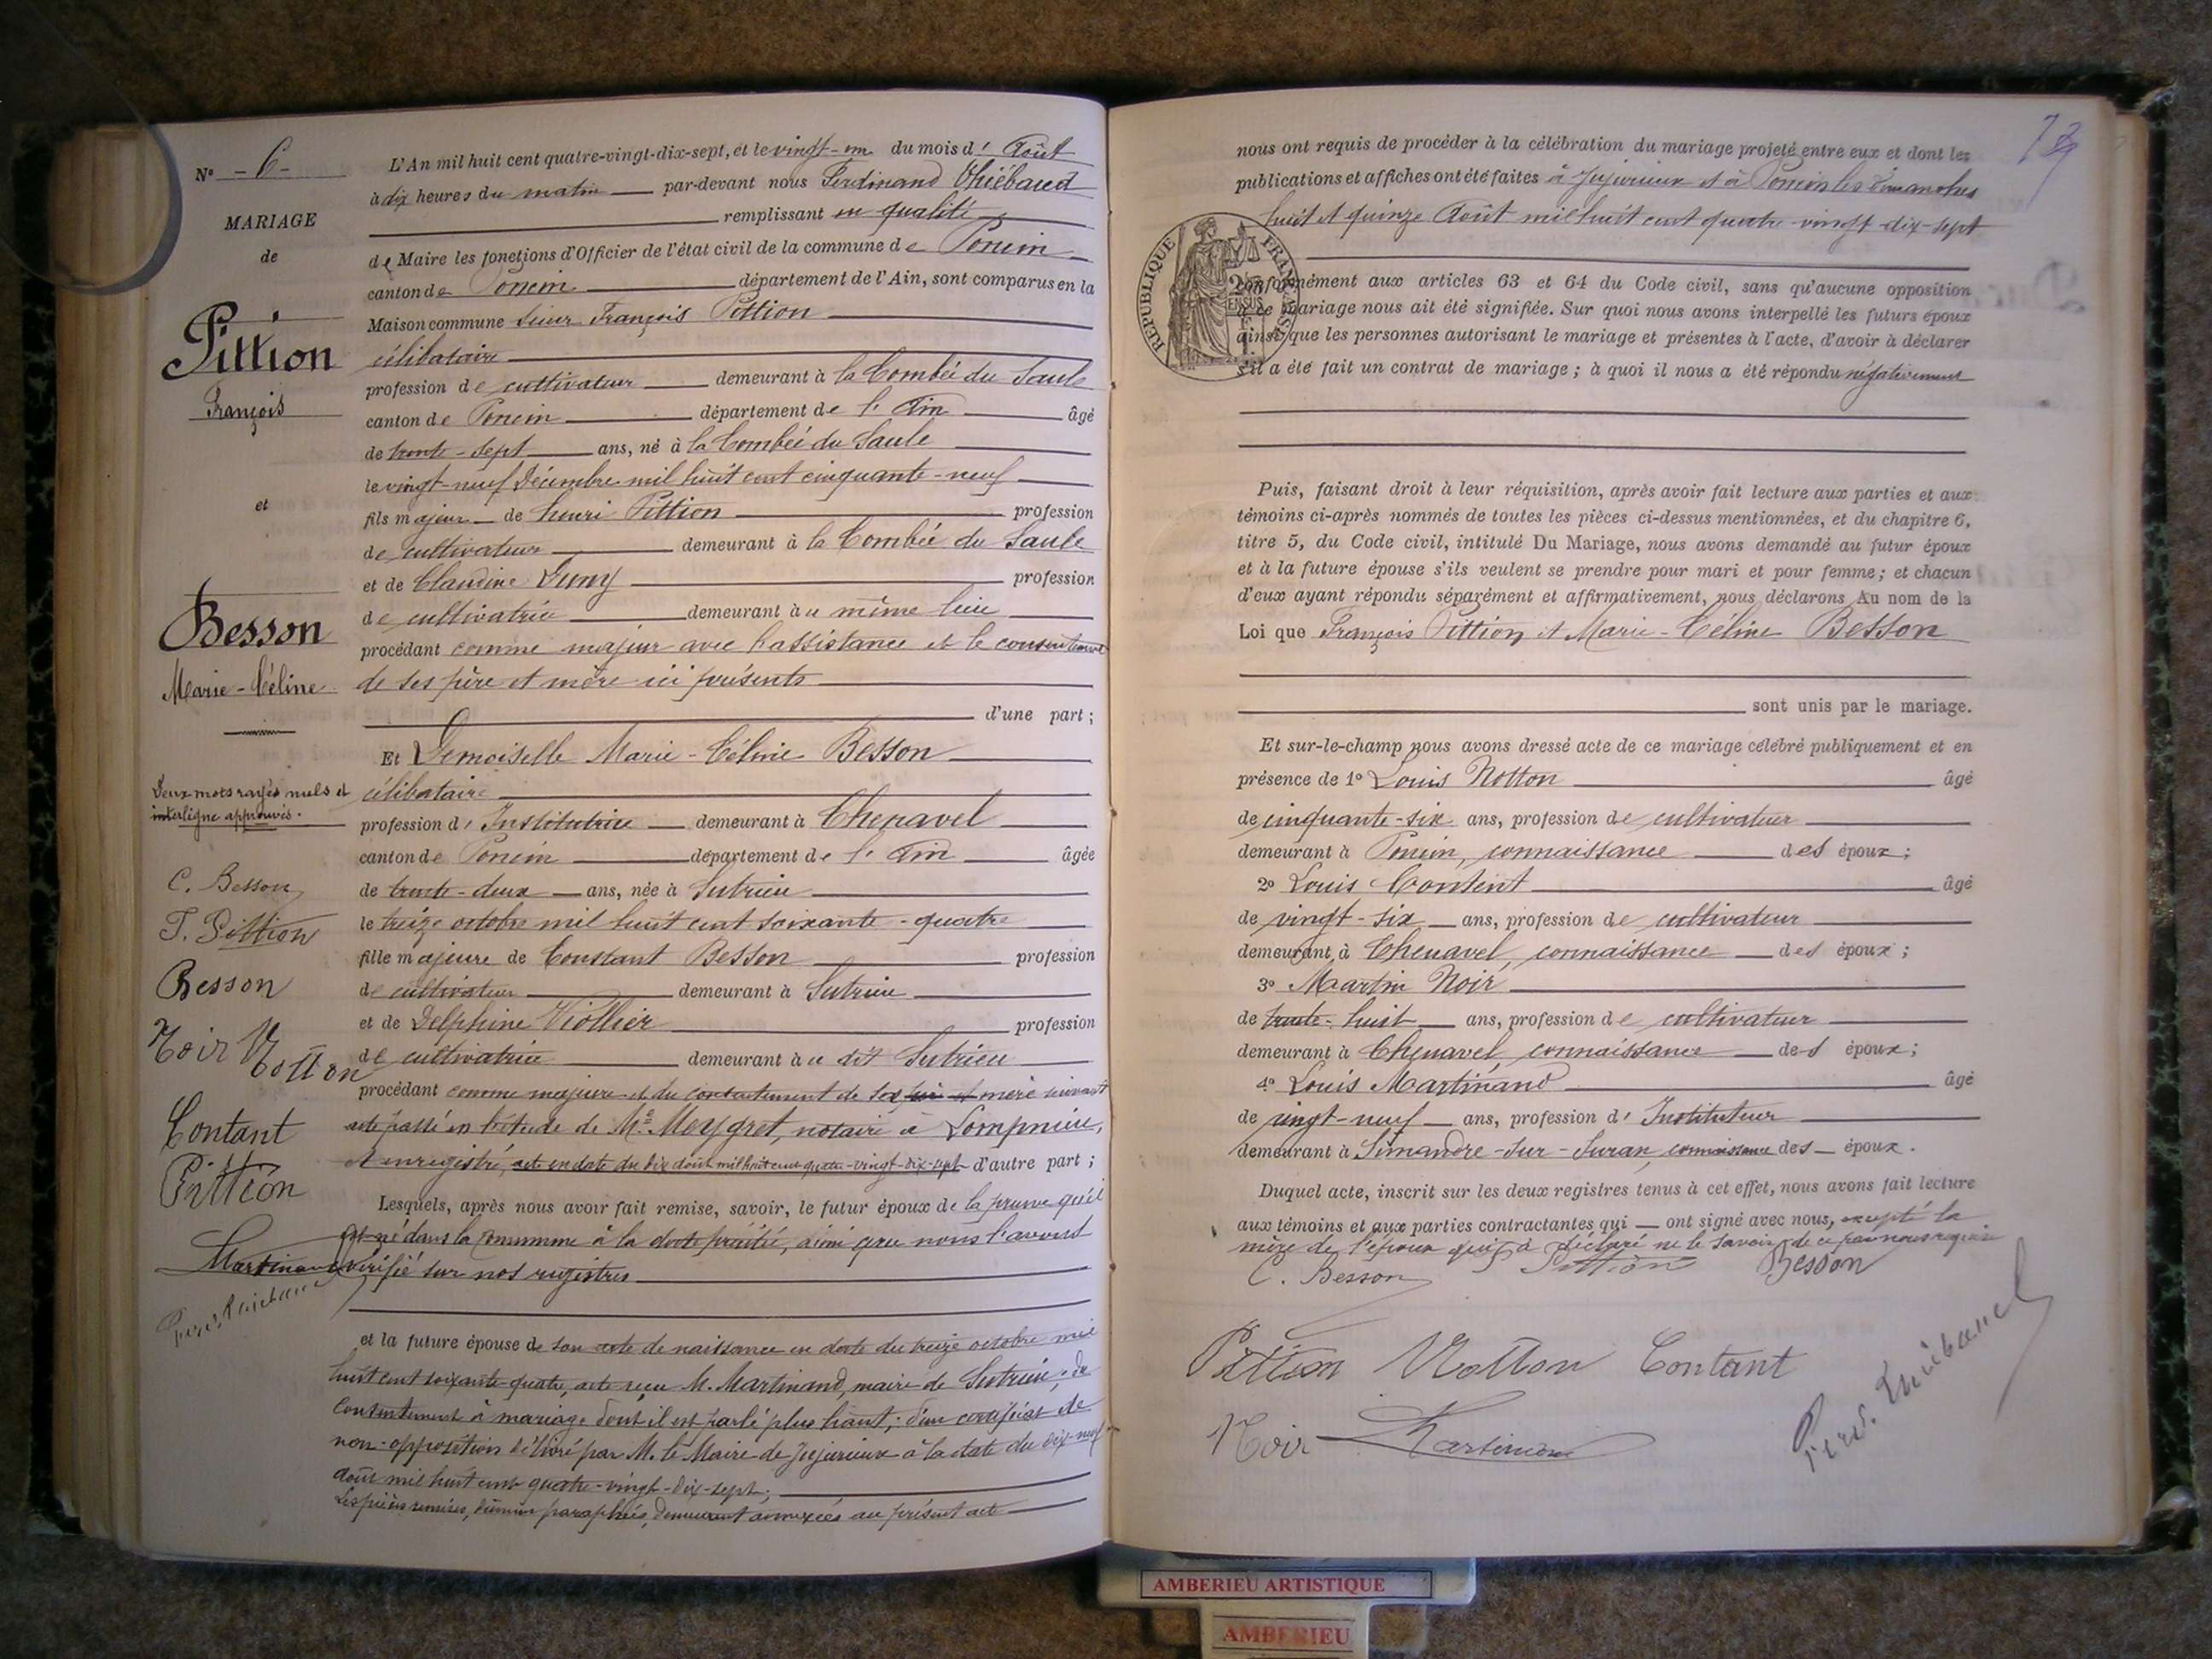 N° - 6 -
MARIAGE
de
Pittion
François
et
Besson
Marie-Céline
Deux mots rayés nuls et
interligne approuvés.
C. Besson
F. Pittion
Besson
Noir Notton
Contant
Pittion
Martinand
Ferd. Thiébaud
L'An mil huit cent quatre-vingt-dix-sept, et le vingt-un du mois d' Août
à dix heures du matin par-devant nous Ferdinand Thiébaud
remplissant en qualité
de Maire les fonctions d'Officier de l'état civil de la commune de Poncin
canton de Poncin département de l'Ain, sont comparus en la
Maison commune sieur François Pittion
célibataire
profession de cultivateur demeurant à la Combée du Saule
canton de Poncin département de l'Ain âgé
de trente-sept ans, né à la Combée du Saule
le vingt-neuf Décembre mil huit cent cinquante-neuf
fils majeur de henri Pittion profession
de cultivateur demeurant à la Combée du Saule
et de Claudine profession
de cultivatrice demeurant au même lieu
procédant comme majeur avec l'assistance et le consentement
de ses père et mère ici présents
d'une part ;
Et Demoiselle Marie-Céline Besson
célibataire
profession d' Institutrice demeurant à Chenavel
canton de Poncin département de l'Ain âgée
de trente-deux ans, née à Sutrieu
le treize octobre mil huit cent soixante-quatre
fille majeure de Constant Besson profession
de cultivateur demeurant à Sutrieu
et de Delphine Viollier profession
de cultivatrice demeurant au dit Sutrieu
procédant comme majeure et du consentement de ses père et mère suivant
acte passé en l'étude de Me Meygret, notaire à Lompnieu,
et enregistré, acte en date du dix août mil huit cent quatre-vingt-dix-sept d'autre part ;
Lesquels, après nous avoir fait remise, savoir, le futur époux de la preuve qu'il
est né dans la commune à la date précitée, ainsi que nous l'avons
vérifié sur nos registres
et la future épouse de son acte de naissance en date du treize octobre mil
huit cent soixante-quatre, acte reçu M. Martinand, maire de Sutrieu ; du
consentement à mariage dont il est parlé plus haut ; d'un certificat de
non-opposition délivré par M. le Maire de Jujurieux à la date du dix-neuf
août mil huit cent quatre-vingt-dix-sept ;
Les pièces remises, dûment paraphées, demeurant annexées au présent acte
73
nous ont requis de procéder à la célébration du mariage projeté entre eux et dont les
publications et affiches ont été faites à Jujurieux et à Poncin les dimanches
huit et quinze Août mil huit cent quatre-vingt-dix-sept
RÉPUBLIQUE FRANÇAISE
conformément aux articles 63 et 64 du Code civil, sans qu'aucune opposition
à ce mariage nous ait été signifiée. Sur quoi nous avons interpellé les futurs époux
ainsi que les personnes autorisant le mariage et présentes à l'acte, d'avoir à déclarer
s'il a été fait un contrat de mariage ; à quoi il nous a été répondu négativement
Puis, faisant droit à leur réquisition, après avoir fait lecture aux parties et aux
témoins ci-après nommés de toutes les pièces ci-dessus mentionnées, et du chapitre 6,
titre 5, du Code civil, intitulé Du Mariage, nous avons demandé au futur époux
et à la future épouse s'ils veulent se prendre pour mari et pour femme ; et chacun
d'eux ayant répondu séparément et affirmativement, nous déclarons Au nom de la
Loi que François Pittion et Marie-Céline Besson
sont unis par le mariage.
Et sur-le-champ nous avons dressé acte de ce mariage célébré publiquement et en
présence de 1° Louis Notton âgé
de cinquante-six ans, profession de cultivateur
demeurant à Poncin, connaissance des époux ;
2° Louis Contant âgé
de vingt-six ans, profession de cultivateur
demeurant à Chenavel, connaissance des époux ;
3° Martin Noir
de trente-huit ans, profession de cultivateur
demeurant à Chenavel, connaissance des époux ;
4° Louis Martinand âgé
de vingt-neuf ans, profession d' Instituteur
demeurant à Simandre-sur-Suran, connaissance des époux.
Duquel acte, inscrit sur les deux registres tenus à cet effet, nous avons fait lecture
aux témoins et aux parties contractantes qui ont signé avec nous, excepté la
mère de l'époux qui a déclaré ne le savoir de ce par nous requise
C. Besson Pittion Besson
Pittion Notton Contant
Noir Martinand
Ferd. Thiébaud
AMBERIEU ARTISTIQUE
AMBERIEU